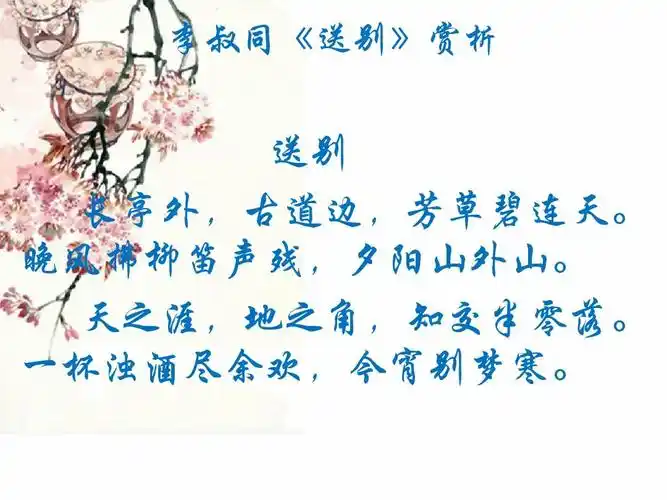 李叔同《送别》赏析
送别
长亭外，古道边，芳草碧连天。
晚风拂柳笛声残，夕阳山外山。
天之涯，地之角，知交半零落。
一杯浊酒尽余欢，今宵别梦寒。